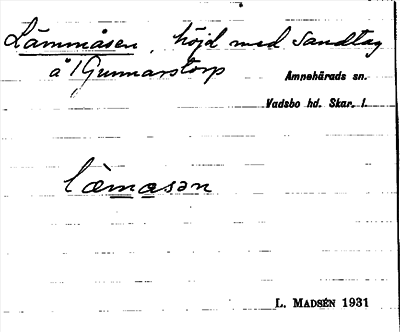 Lämmåsen, höjd med Sandtag
å 1 Gunnarstorp
Amnehärads sn.
Vadsbo hd. Skar. l.
lœmasən
L. MADSÉN 1931